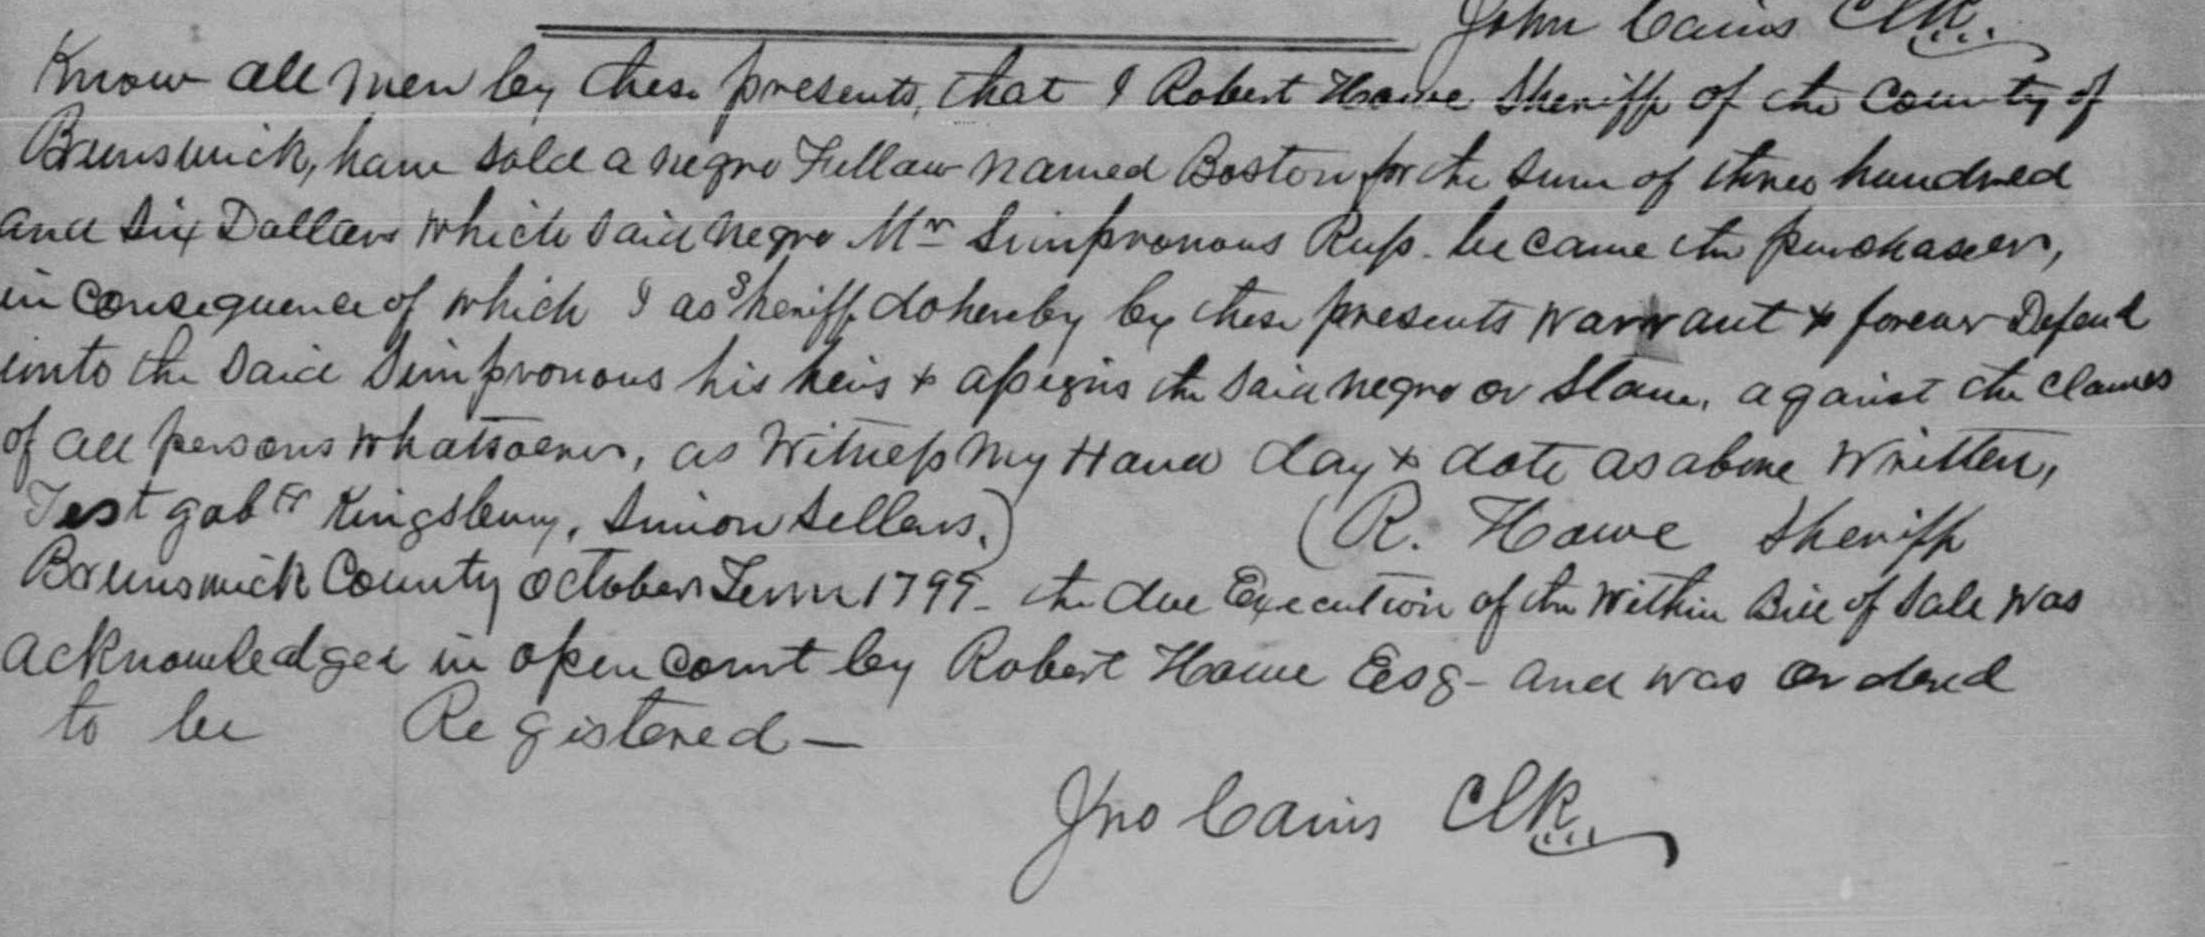 John Cains Clk.
Know all men by these presents, that I Robert Howe Sheriff of the County of
Brunswick, have sold a negro Fellow named Boston for the sum of three hundred
and six Dollars which said negro Mr Simpronous Russ. became the purchaser,
in consequence of which I as Sheriff do hereby by these presents warrant & forever Defend
unto the said Simpronous his heirs & assigns the said negro or Slave, against the claims
of all persons whatsoever, as Witness my Hand day & date as above written,
Test gabl Kingsbury, Simon Sellers.) (R. Howe Sheriff
Brunswick County October Term 1799- the due Execution of the within Bill of Sale was
acknowledged in open court by Robert Howe Esq- and was ordered
to be Registered—
Jno Cains Clk.